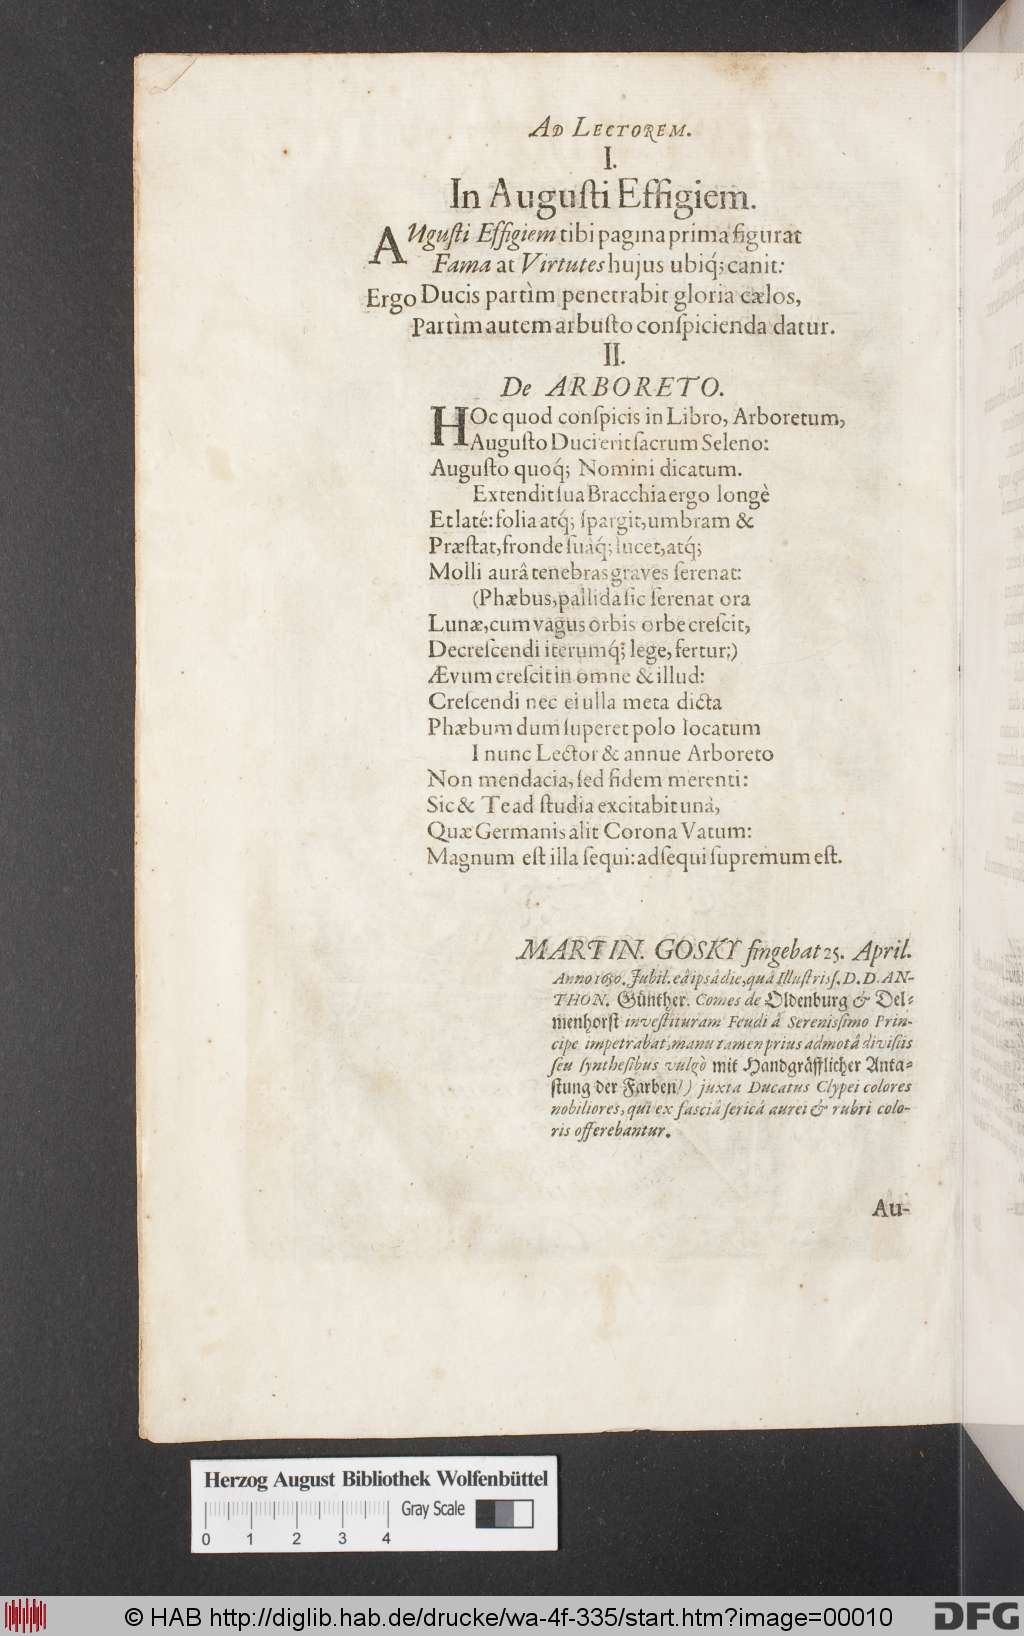 AD LECTOREM.
I.
In Auguſti Effigiem.
AUguſti Effigiem tibi pagina prima figurat
Fama at Virtutes hujus ubiq́; canit:
Ergo Ducis partìm penetrabit gloria cælos,
Partìm autem arbuſto conſpicienda datur.
II.
De ARBORETO.
HOc quod conſpicis in Libro, Arboretum,
Auguſto Duci erit ſacrum Seleno:
Auguſto quoq́; Nomini dicatum.
Extendit ſua Bracchia ergo longè
Et laté: folia atq́; ſpargit, umbram &
Præſtat, fronde ſuâq́; lucet, atq́;
Molli aurâ tenebras graves ſerenat:
(Phæbus, pallida ſic ſerenat ora
Lunæ, cum vagus orbis orbe creſcit,
Decreſcendi iterumq́; lege, fertur;)
Ævum creſcit in omne & illud:
Creſcendi nec ei ulla meta dicta
Phæbum dum ſuperet polo locatum
I nunc Lector & annue Arboreto
Non mendacia, ſed fidem merenti:
Sic & Te ad ſtudia excitabit unà,
Quæ Germanis alit Corona Vatum:
Magnum eſt illa ſequi: adſequi ſupremum eſt.
MARTIN. GOSKY fingebat 25. April.
Anno 1650. Jubil. eâ ipsâ die, quâ Illuſtriſſ. D. D. AN-
THON. Günther. Comes de Oldenburg & Del-
menhorſt inveſtituram Feudi â Sereniſſimo Prin-
cipe impetrabat, manu tamen prius admotâ diviſiis
ſeu ſyntheſibus vulgò mit Handgräfflicher Anta-
ſtung der Farben/) juxta Ducatus Clypei colores
nobiliores, qui ex faſciâ ſericâ aurei & rubri colo-
ris offerebantur.
Au-
Herzog August Bibliothek Wolfenbüttel
Gray Scale
0 1 2 3 4
© HAB http://diglib.hab.de/drucke/wa-4f-335/start.htm?image=00010
DFG